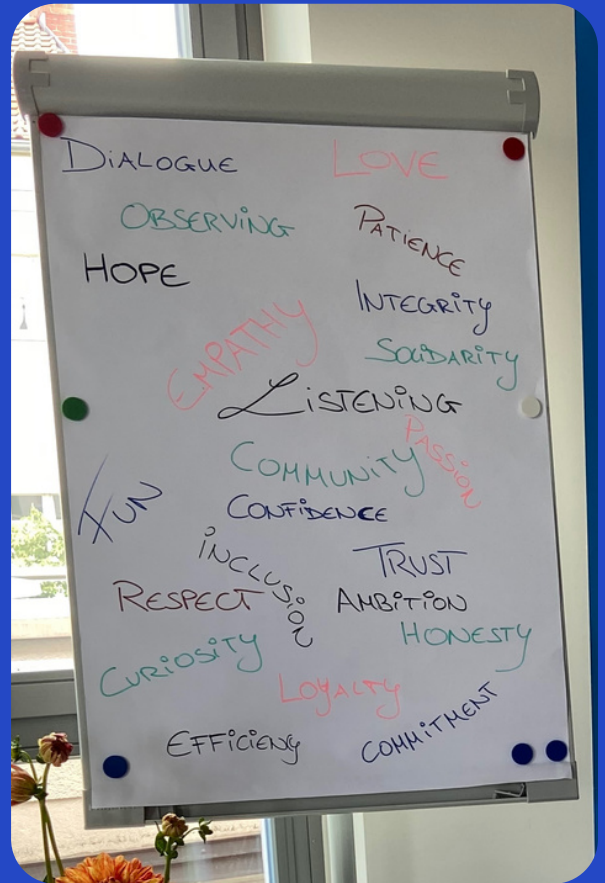 DiALOGUE
LOVE
OBSERViNG
PATiENCE
HOPE
INTEGRiTY
EMPATHY
SOLiDARiTY
LiSTENiNG
PASSiON
COMMUNiTY
FUN
CONFiDENCE
iNCLUSiON
TRUST
RESPECT
AMBiTiON
HONESTY
CURiOSiTY
LOYALTY
COMMiTMENT
EFFiCiENY